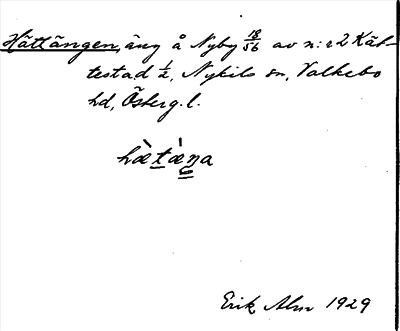 Hättängen, äng å Nyby 18/56 av n:r 2 Kät-
testad 1/2, Nykils sn, Valkebo
hd, Österg. l.
hæ̀tæ̀ŋa
Erik Alm 1929